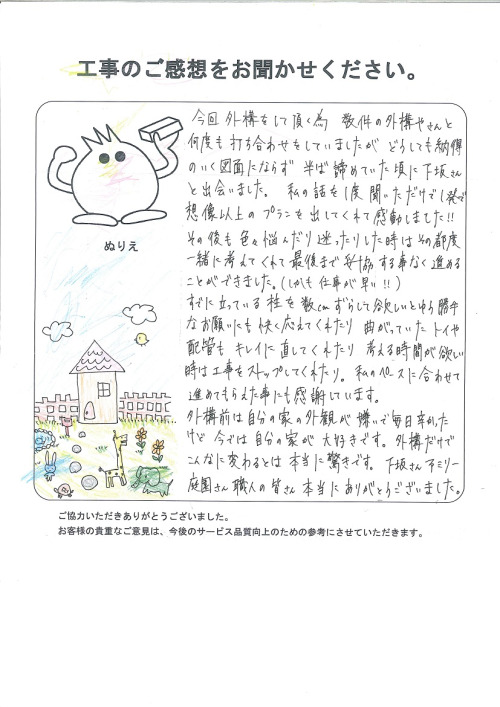 工事のご感想をお聞かせください。
今回 外構をして頂く為 数件の外構やさんと
何度も打ち合わせをしていましたが どうしても納得
のいく図面にならず 半ば諦めていた頃に下坂さん
と出会いました。 私の話を1度聞いただけで1発で
想像以上のプランを出してくれて感動しました!!
その後も色々悩んだり迷ったりした時はその都度
一緒に考えてくれて最後まで妥協する事なく進める
ことができました。(しかも仕事が早い!!)
すでに立っている柱を数cmずらして欲しいとゆう勝手
なお願いにも快く応えてくれたり 曲がっていたトイや
配管も キレイに直してくれたり 考える時間が欲しい
時は工事をストップしてくれたり。私のペースに合わせて
進めてもらえた事にも感謝しています。
外構前は自分の家の外観が嫌いで毎日辛かった
けど 今では自分の家が大好きです。外構だけで
こんなに変わるとは本当に驚きです。下坂さん ファミリー
庭園さん 職人の皆さん 本当にありがとうございました。
ぬりえ
ご協力いただきありがとうございました。
お客様の貴重なご意見は、今後のサービス品質向上のための参考にさせていただきます。